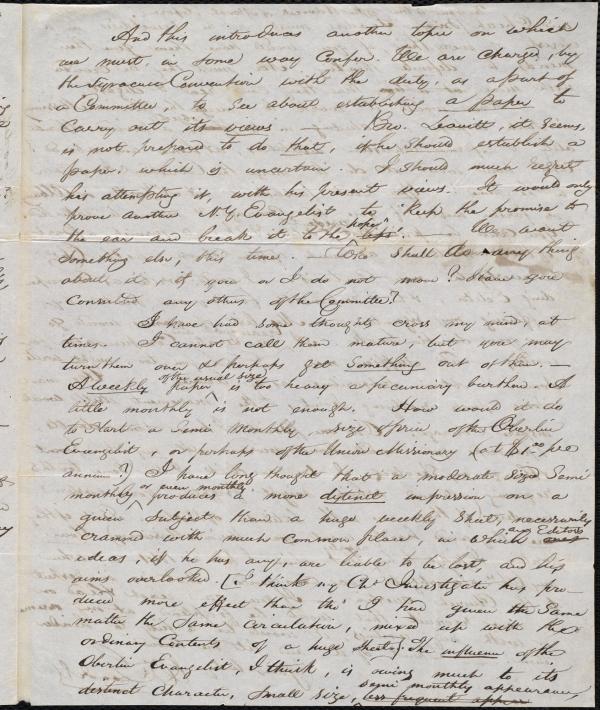 And this introduces another topic on which
we must, in some way confer. We are charged, by
the Syracuse Convention with the duty, as a part of
a Committee, to see about establishing a paper to
carry out its views — Geo. Leavitt, it seems,
is not prepared to do that, if he should establish a
paper: which is uncertain. I should much regret
his attempting it, with his present views. It would only
prove another N.Y. Evangelist to "keep the promise to
the ear and break it to the hope". — We want
something else, this time. — Who shall do any thing
about it, if you or I do not move? Have you
consulted any others of the Committee?
I have had some thoughts cross my mind, at
times. I cannot call them mature, but you may
turn them over & perhaps get something out of them. —
A weekly paper of the usual size is too heavy a pecuniary burthen. A
little monthly is not enough. How would it do
to start a Semi Monthly, size & price of the Oberlin
Evangelist, or perhaps of the Union Missionary (at $1.00 per
annum?) I have long thought that a moderate sized Semi
monthly or even monthly produces a more distinct impression on a
given subject than a huge weekly sheet, necessarily
crammed with much common place, in which any Editors
ideas, if he has any, are liable to be lost, and his
aims overlooked. [I think my Ch. Investigator has pro-
duced more effect than tho' I had given the same
matter the same circulation, mixed up with the
ordinary contents of a huge sheet.] The influence of the
Oberlin Evangelist, I think, is owing much to its
distinct character, small size, semi monthly appearance,
less frequent appear